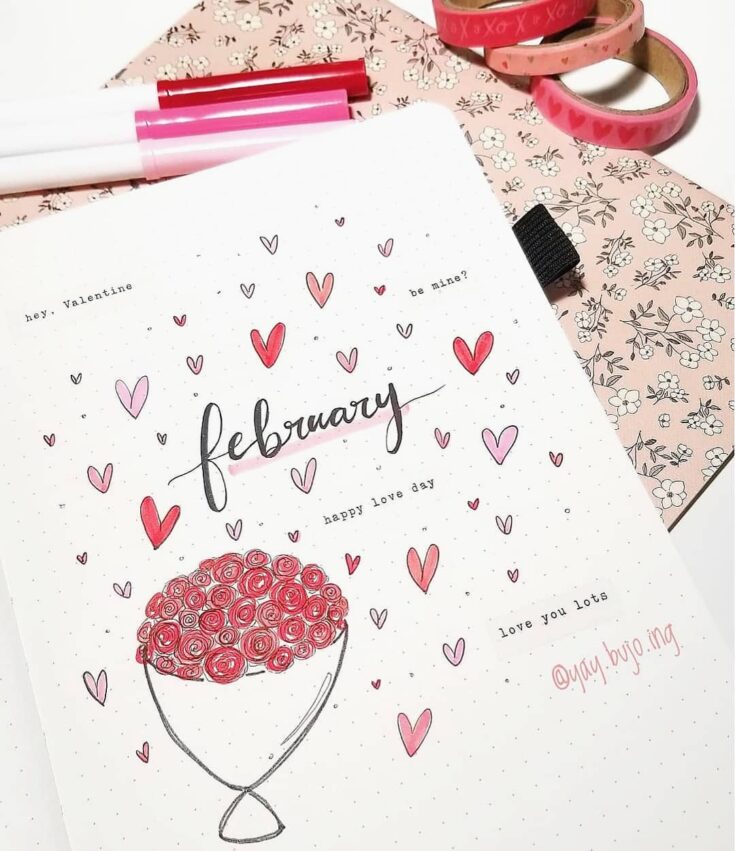 XOXOX
hey, Valentine
be mine?
february
happy love day
love you lots
@yay.bujo.ing